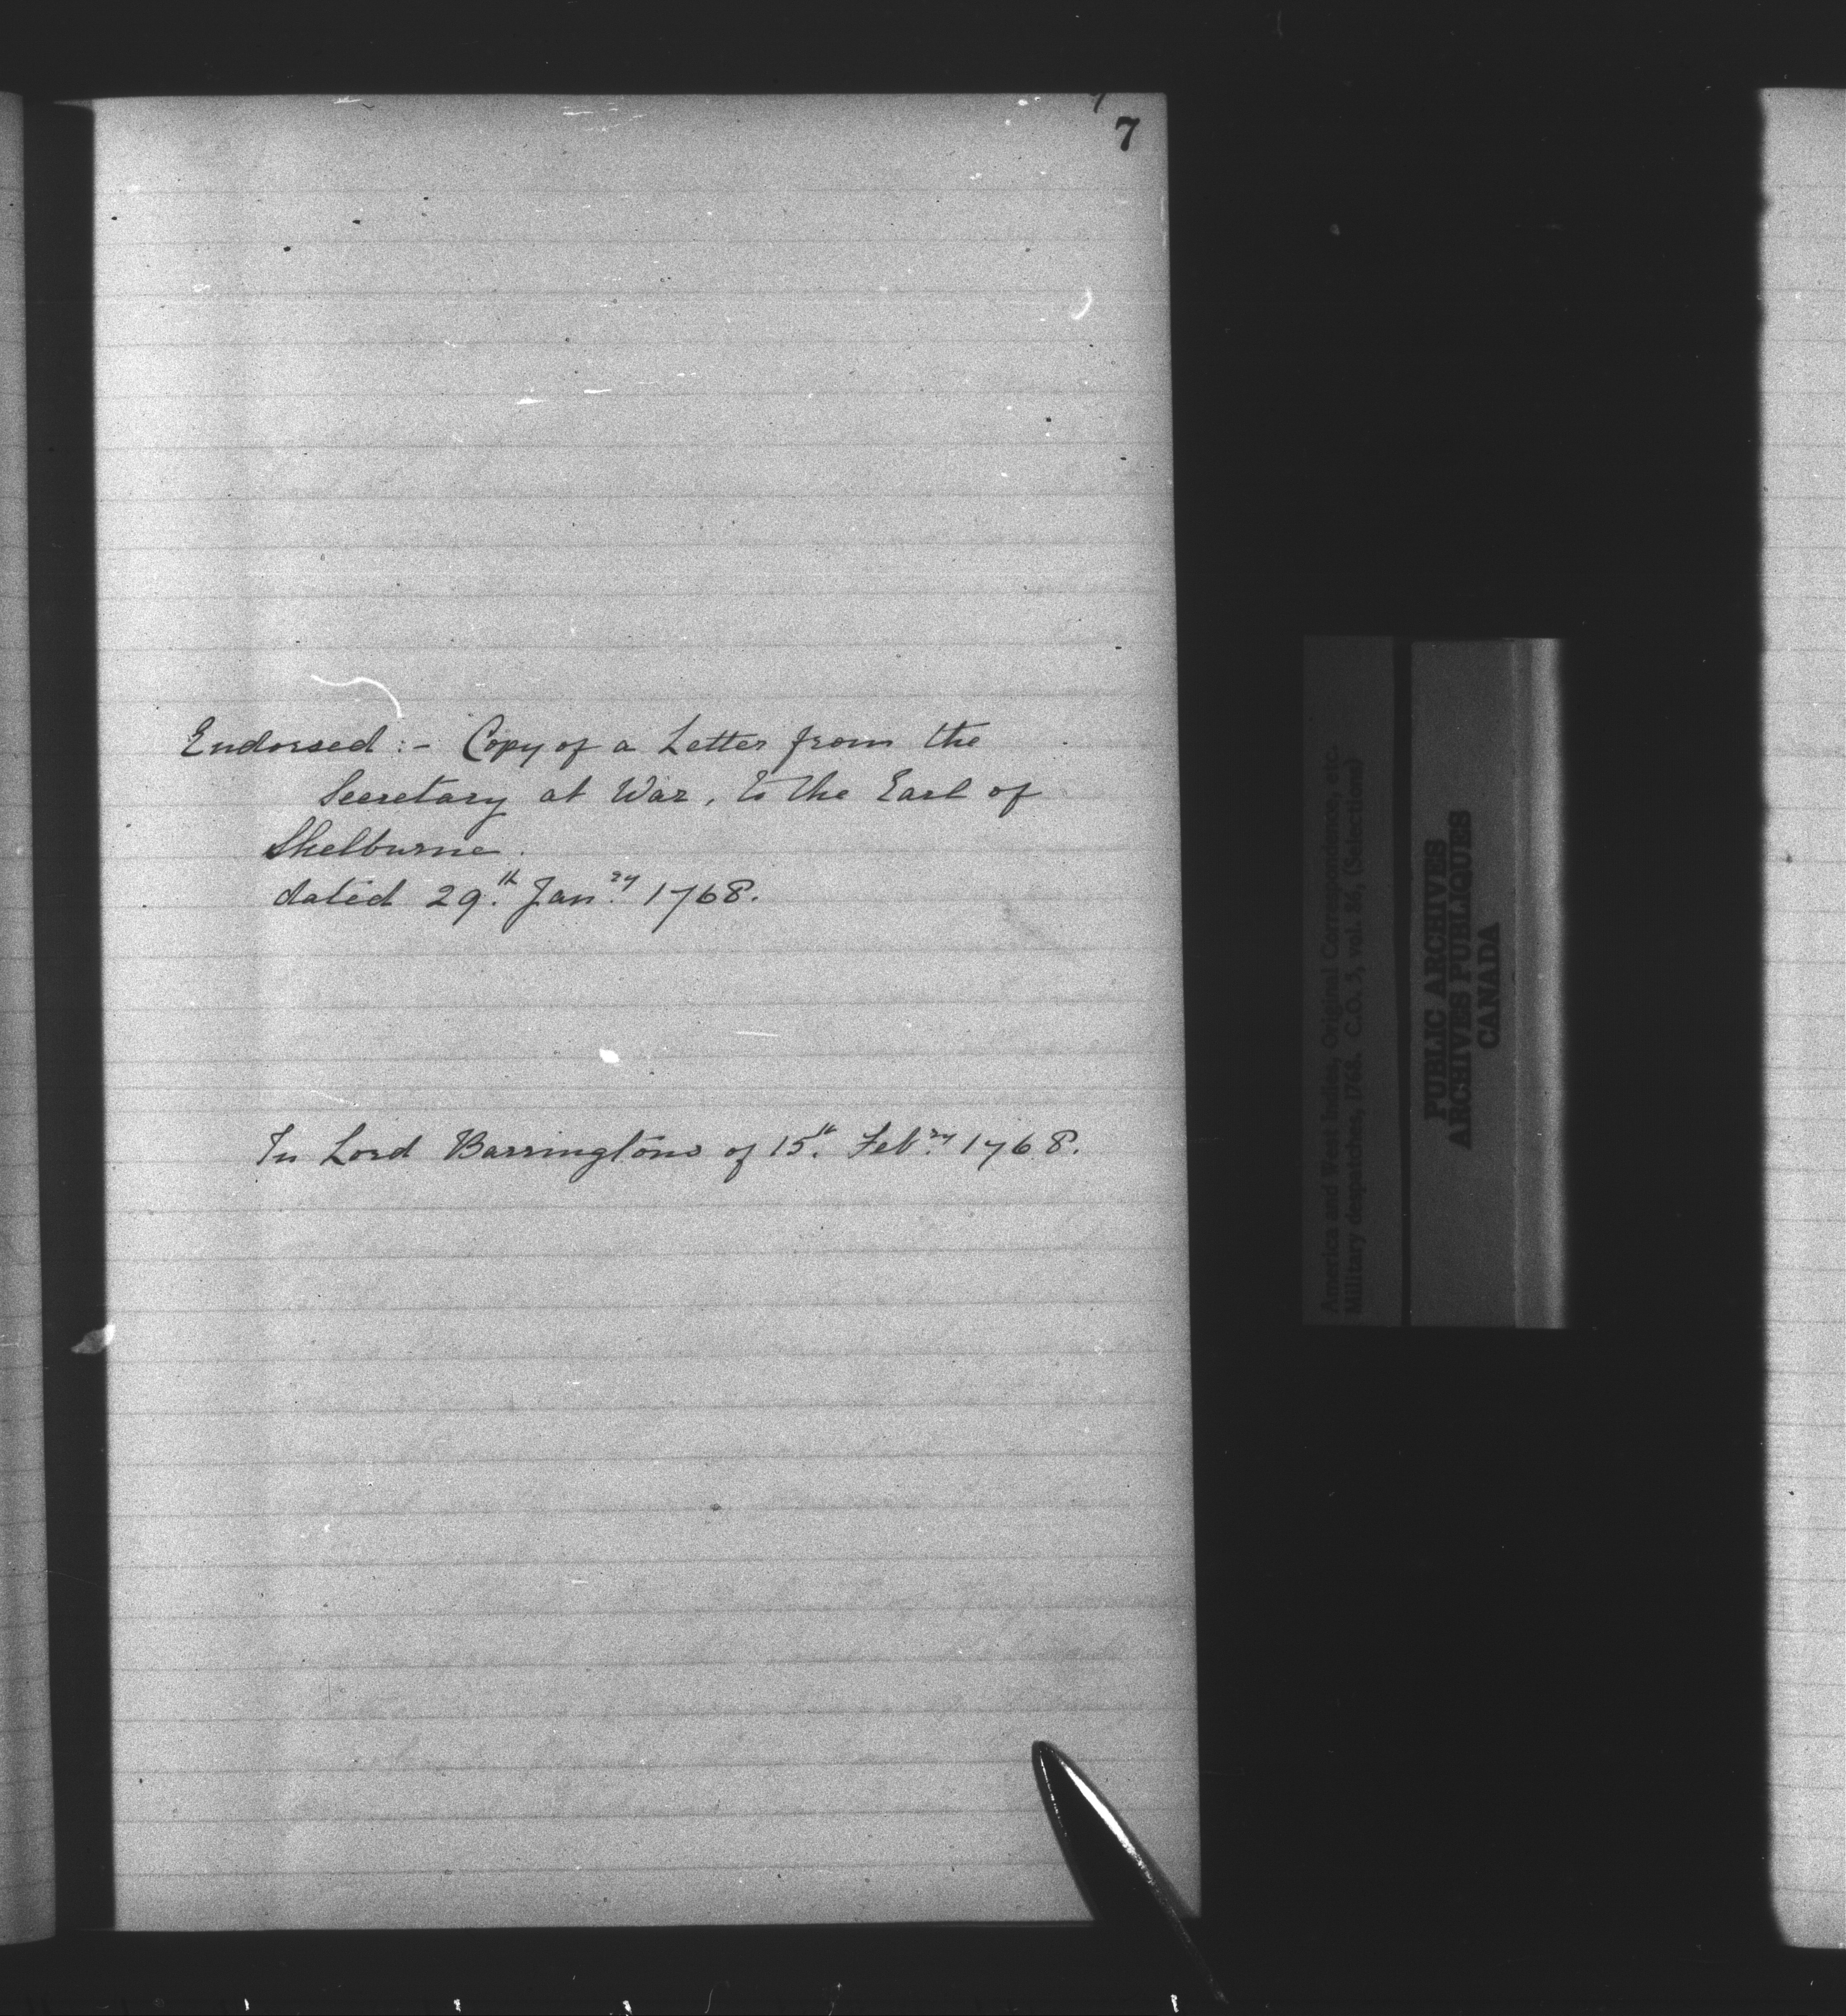 7
Endorsed :- Copy of a Letter from the
Secretary at War, to the Earl of
Shelburne.
dated 29.th Jan.ry 1768.
In Lord Barringtons of 15.th Feb.ry 1768.
America and West Indies, Original Correspondence, etc.
Military despatches, 1768. C.O. 5, vol. 86, (Selections)
PUBLIC ARCHIVES
ARCHIVES PUBLIQUES
CANADA